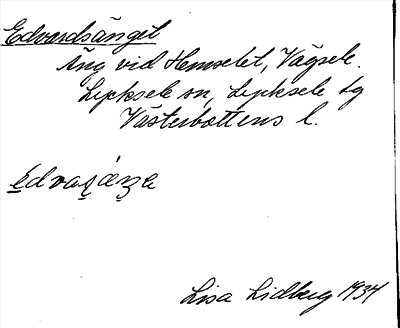 Edvardsänget
Äng vid Hemselet, Vägsele.
Lycksele sn, Lycksele lg
Västerbottens l.
Lisa Lidberg 1934